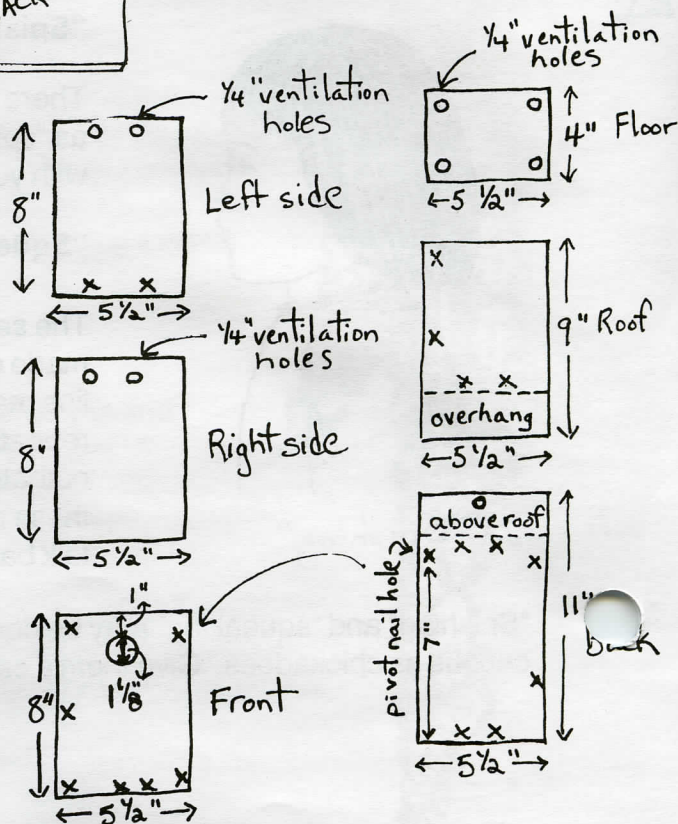 ACK
1/4" ventilation
holes
8"
Left side
5 1/2"
1/4" ventilation
holes
8"
Right side
5 1/2"
1"
1 1/8"
8"
Front
5 1/2"
1/4" ventilation
holes
4" Floor
5 1/2"
9" Roof
overhang
5 1/2"
above roof
pivot nail hole
7"
11"
5 1/2"